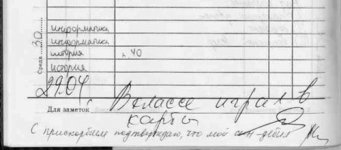 информатика
информатика
история 2.40
история
Среда 30
29.04
Для заметок В классе играл в
карты
С прискорбием подтверждаю, что мой сын дебил